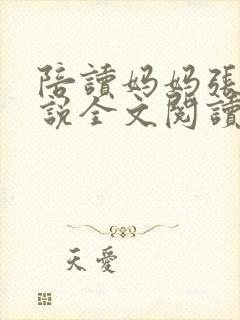 陪讀妈妈張
說全文閱讀
天愛